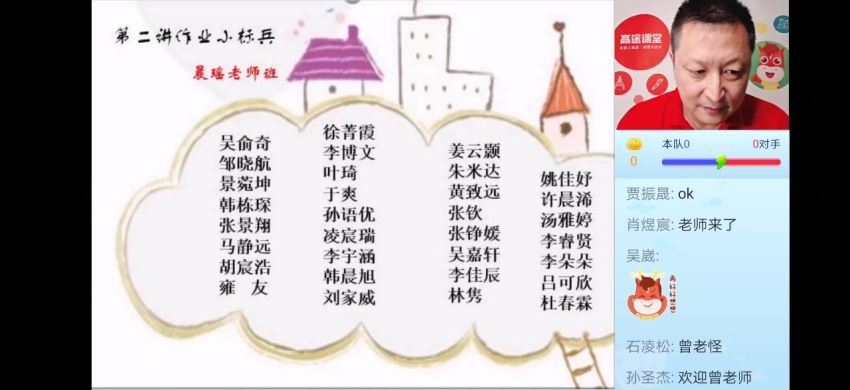 第二讲作业小标兵
晨瑶老师班
吴俞奇
邹晓航
景菀坤
韩栋琛
张景翔
马静远
胡宸浩
雍 友
徐菁霞
李博文
叶琦
于爽
孙语优
凌宸瑞
李宇涵
韩晨旭
刘家威
姜云颢
朱米达
黄致远
张钦
张铮媛
吴嘉轩
李佳辰
林隽
姚佳妤
许晨浠
汤雅婷
李睿贤
李朵朵
吕可欣
杜春霖
高途课堂
本队0
0对手
0
贾振晟: ok
肖煜宸: 老师来了
吴崴:
石凌松: 曾老怪
孙圣杰: 欢迎曾老师